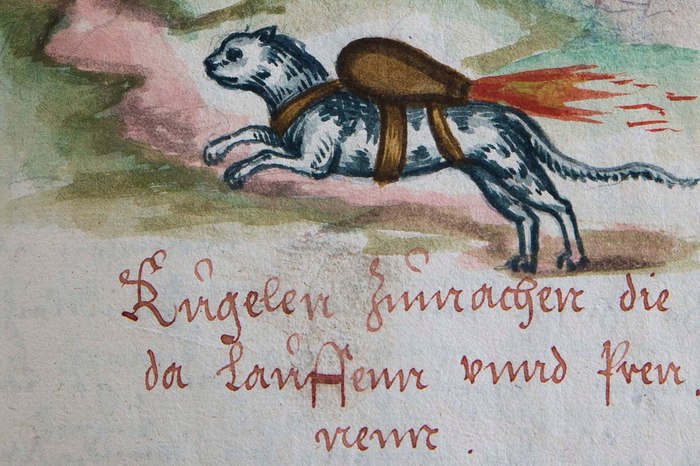 Kugelen zumachen die
da lauffenn vnnd Pren,
nenn.